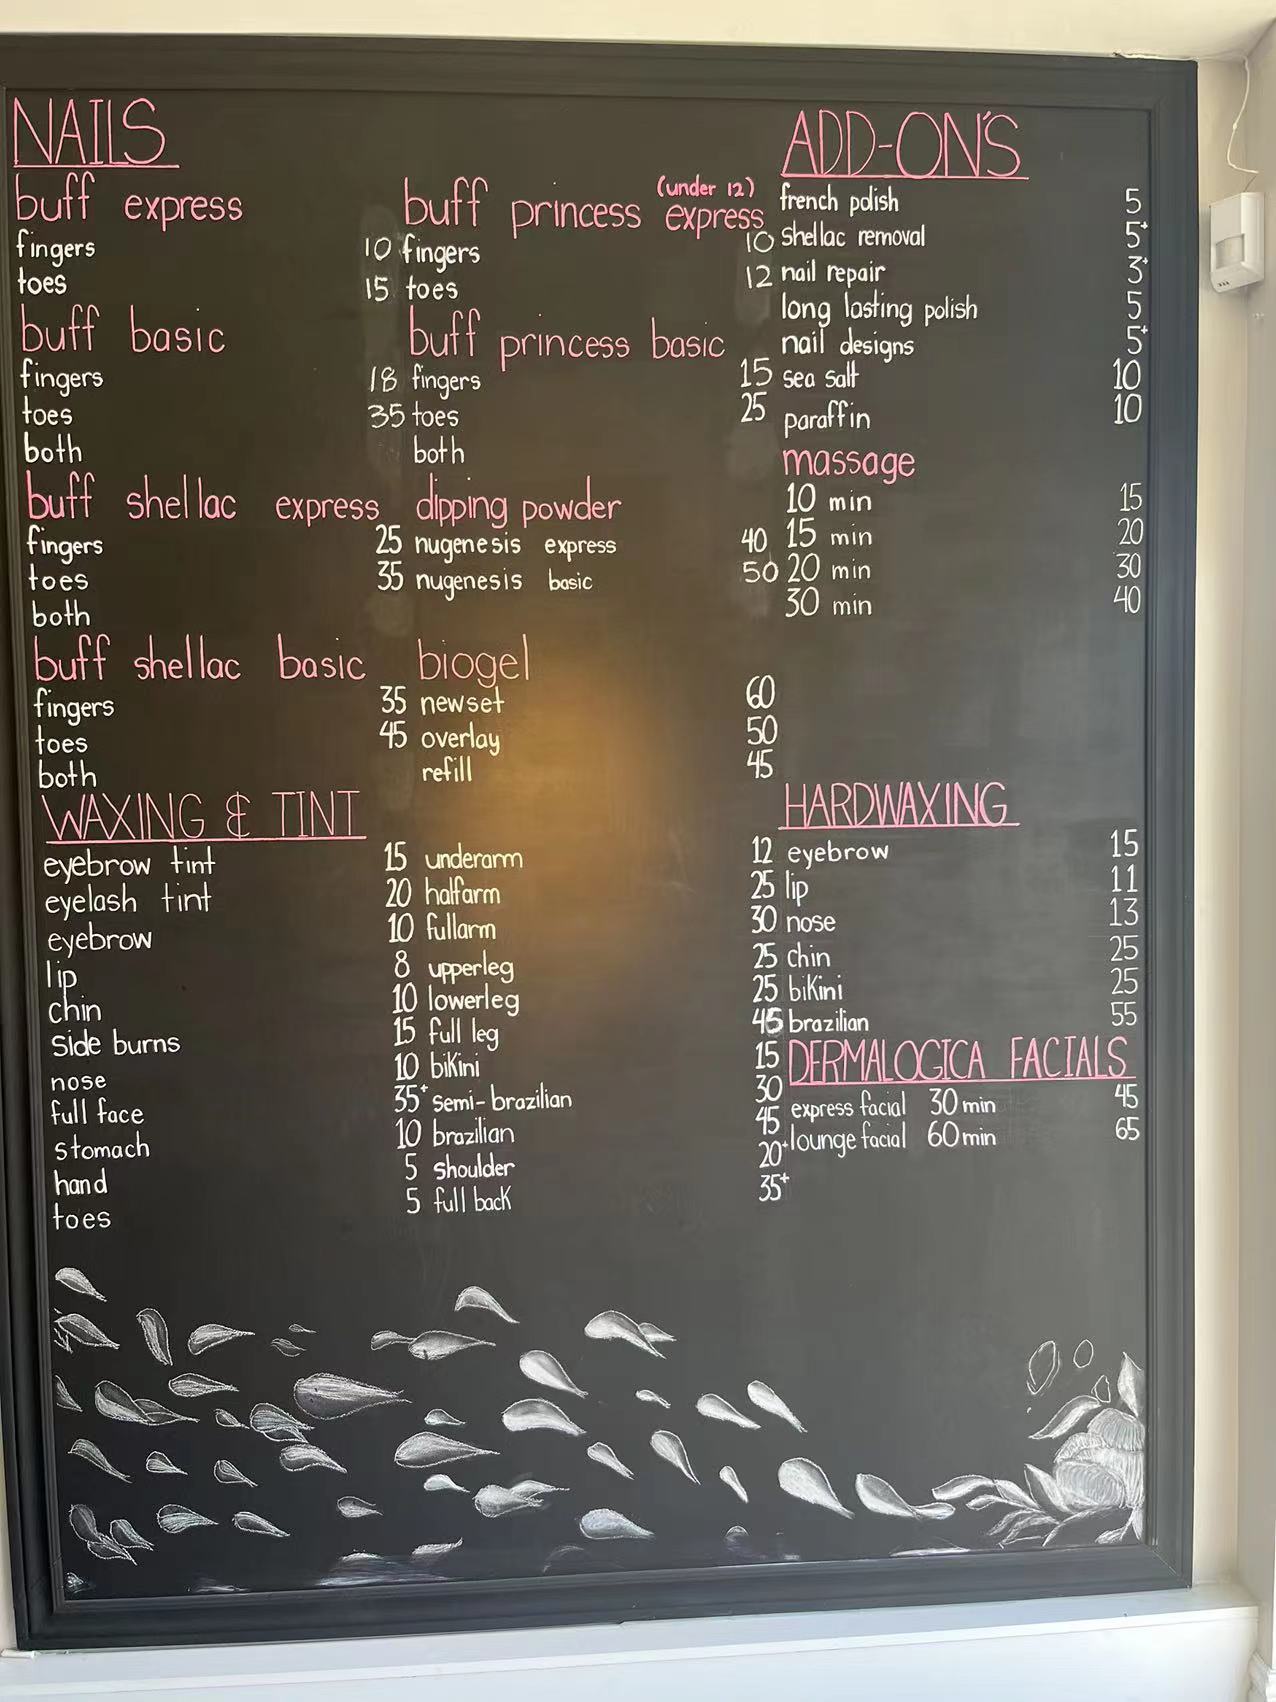 NAILS
buff express
fingers 10
toes 15
buff basic
fingers 18
toes 35
both
buff shellac express
fingers 25
toes 35
both
buff shellac basic
fingers 35
toes 45
both
(under 12)
buff princess express
fingers 10
toes 12
buff princess basic
fingers 15
toes 25
both
dipping powder
nugenesis express 40
nugenesis basic 50
biogel
newset 60
overlay 50
refill 45
ADD-ON'S
french polish 5
shellac removal 5+
nail repair 3+
long lasting polish 5
nail designs 5+
sea salt 10
paraffin 10
massage
10 min 15
15 min 20
20 min 30
30 min 40
WAXING & TINT
eyebrow tint 15
eyelash tint 20
eyebrow 10
lip 8
chin 10
side burns 15
nose 10
full face 35+
stomach 10
hand 5
toes 5
underarm 12
halfarm 25
fullarm 30
upperleg 25
lowerleg 25
full leg 45
bikini 15
semi-brazilian 30
brazilian 45
shoulder 20+
full back 35+
HARDWAXING
eyebrow 15
lip 11
nose 13
chin 25
bikini 25
brazilian 55
DERMALOGICA FACIALS
express facial 30 min 45
lounge facial 60 min 65